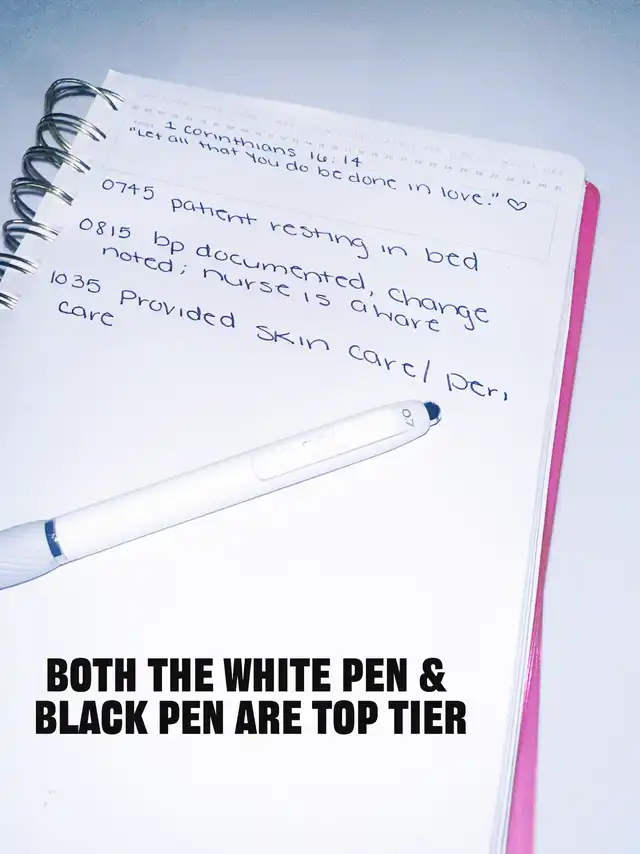 1 Corinthians 16:14
"Let all that you do be done in love." ♡
0745 patient resting in bed
0815 bp documented, change
noted; nurse is aware
1035 Provided skin care/ peri
care
0.7
BOTH THE WHITE PEN &
BLACK PEN ARE TOP TIER